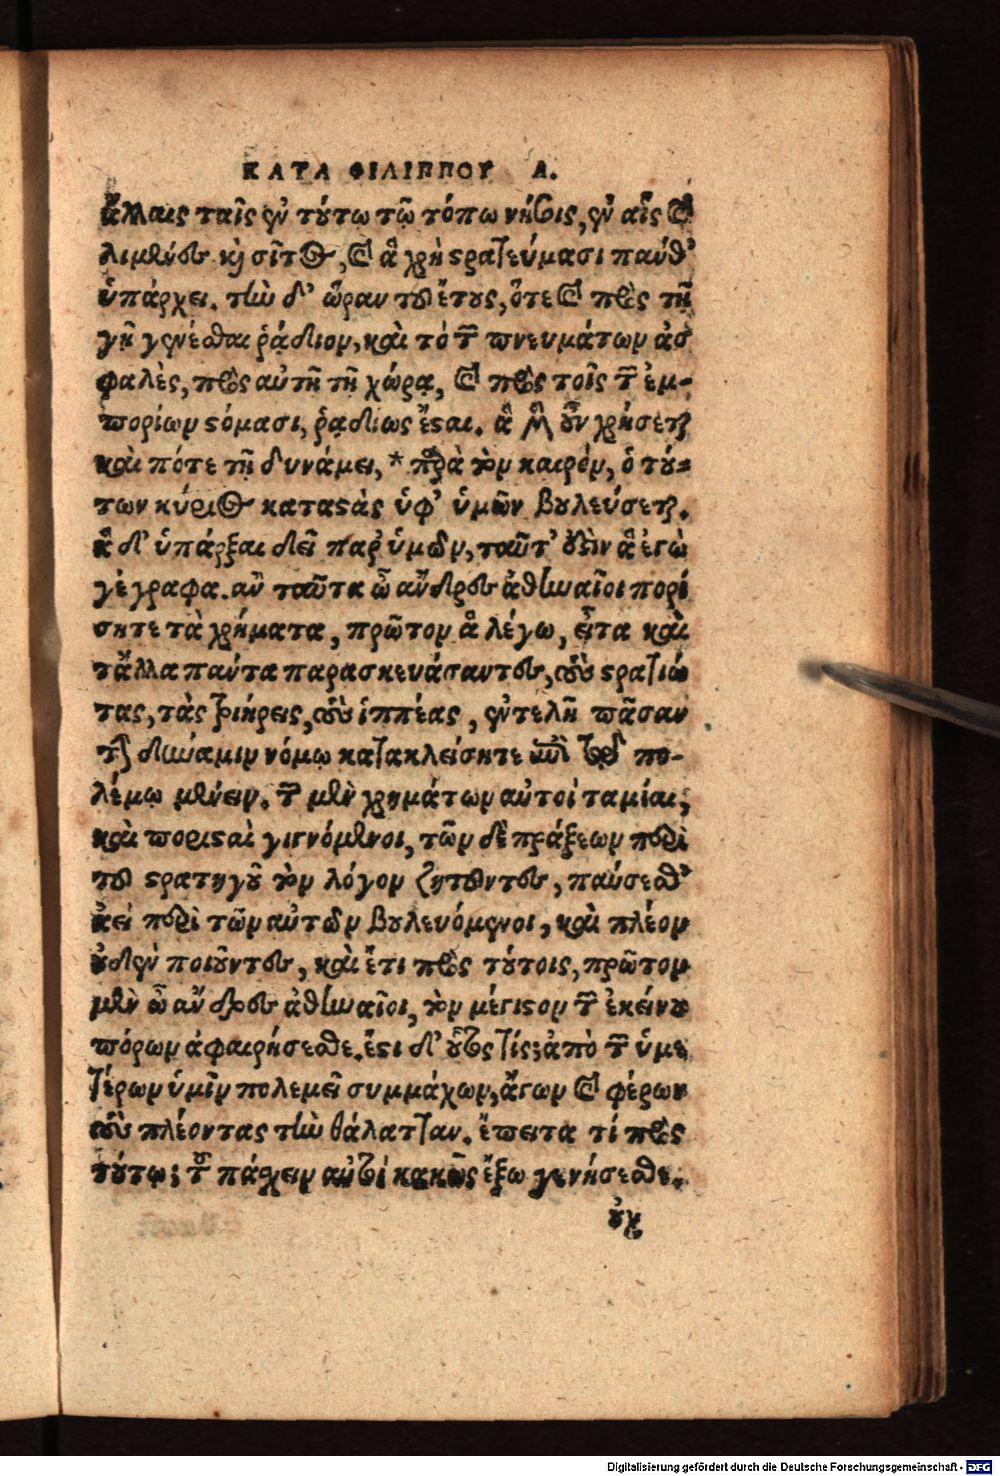 ΚΑΤΑ ΦΙΛΙΠΠΟΥ Α.
ἄλλαις ταῖς ἐν τούτῳ τῷ τόπῳ νήσοις, ἐν αἷς καὶ
λιμένες καὶ σῖτος, καὶ ἃ χρὴ στρατεύμασι πάνθ'
ὑπάρχει. τὴν δ' ὥραν τοῦ ἔτους, ὅτε καὶ πρὸς τῇ
γῇ γενέσθαι ῥᾴδιον, καὶ τὸ τῶν πνευμάτων ἀσ
φαλὲς, πρὸς αὐτῇ τῇ χώρᾳ, καὶ πρὸς τοῖς τῶν ἐμ-
πορίων στόμασι, ῥᾳδίως ἔσται. ἃ μὲν οὖν χρήσεται
καὶ πότε τῇ δυνάμει, * παρὰ τὸν καιρὸν, ὁ τού-
των κύριος καταστὰς ὑφ' ὑμῶν βουλεύσεται.
ἃ δ' ὑπάρξαι δεῖ παρ' ὑμῶν, ταῦτ' ἐστὶν ἃ ἐγὼ
γέγραφα. ἂν ταῦτα ὦ ἄνδρες ἀθηναῖοι πορί
σητε τὰ χρήματα, πρῶτον ἃ λέγω, εἶτα καὶ
τἄλλα πάντα παρασκευάσαντες, τοὺς στρατιώ
τας, τὰς τριήρεις, τοὺς ἱππέας, ἐντελῆ πᾶσαν
τὴν δύναμιν νόμῳ κατακλείσητε ἐπὶ τῷ πο-
λέμῳ μένειν. τῶν μὲν χρημάτων αὐτοὶ ταμίαι,
καὶ πορισταὶ γιγνόμενοι, τῶν δὲ πράξεων παρὰ
τοῦ στρατηγοῦ τὸν λόγον ζητοῦντες, παύσεσθ'
ἀεὶ περὶ τῶν αὐτῶν βουλευόμενοι, καὶ πλέον
οὐδὲν ποιοῦντες, καὶ ἔτι πρὸς τούτοις, πρῶτον
μὲν ὦ ἄνδρες ἀθηναῖοι, τὸν μέγιστον τῶν ἐκείνου
πόρων ἀφαιρήσεσθε. ἔστι δ' οὗτος τίς; ἀπὸ τῶν ὑμε
τέρων ὑμῖν πολεμεῖ συμμάχων, ἄγων καὶ φέρων
τοὺς πλέοντας τὴν θάλατταν. ἔπειτα τί πρὸς
τούτῳ; τοῦ πάσχειν αὐτοὶ κακῶς ἔξω γενήσεσθε.
οὐχ
Digitalisierung gefördert durch die Deutsche Forschungsgemeinschaft - DFG